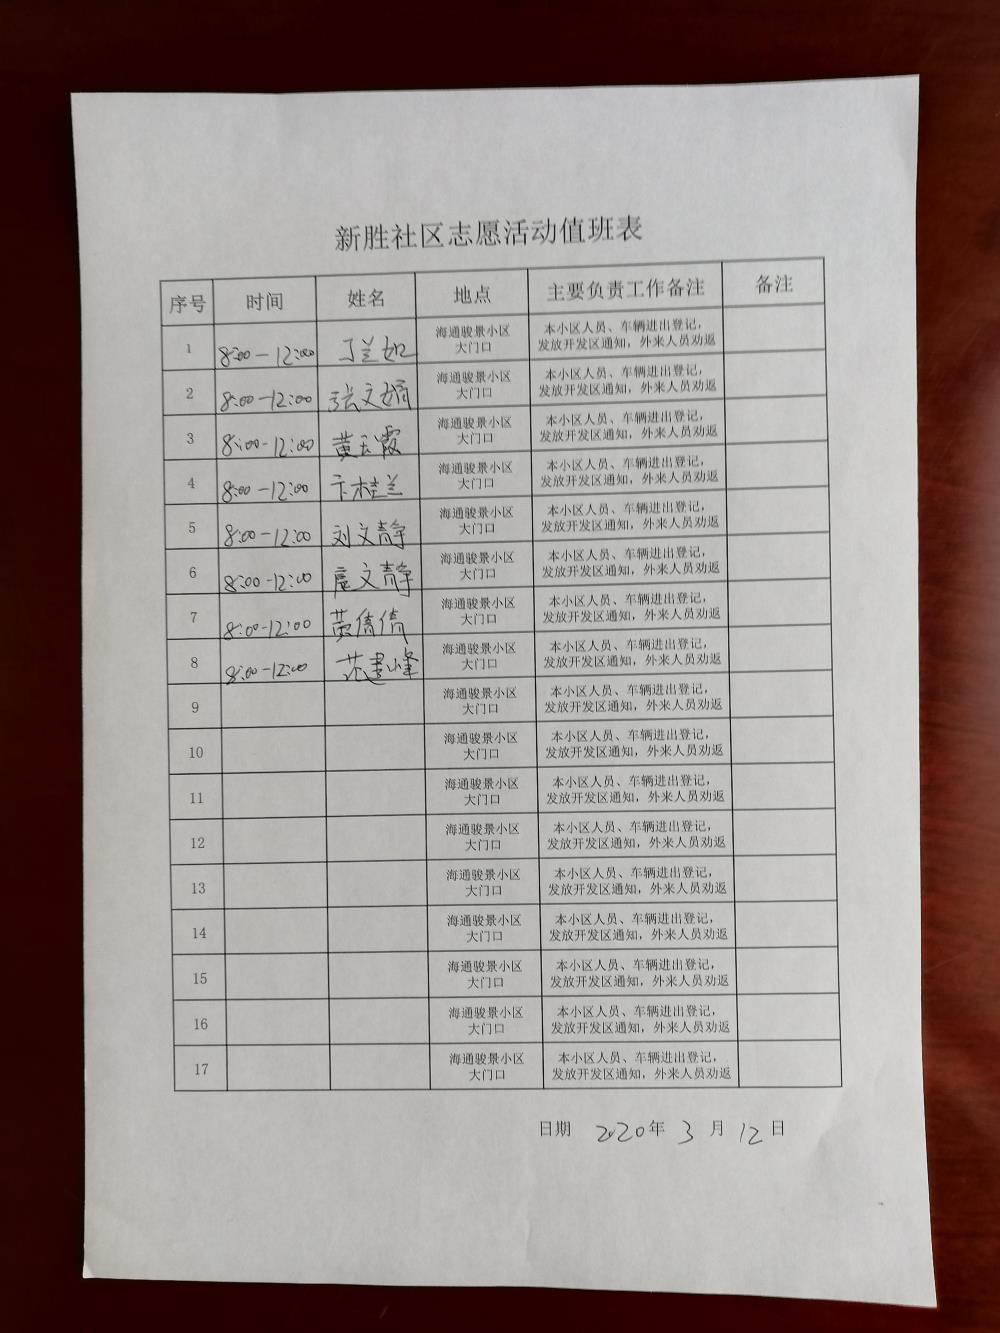 新胜社区志愿活动值班表
序号 时间 姓名 地点 主要负责工作备注 备注
1 8:00-12:00 丁兰如 海通骏景小区 本小区人员、车辆进出登记,
大门口 发放开发区通知，外来人员劝返
2 8:00-12:00 张文娟 海通骏景小区 本小区人员、车辆进出登记,
大门口 发放开发区通知，外来人员劝返
3 8:00-12:00 黄玉霞 海通骏景小区 本小区人员、车辆进出登记,
大门口 发放开发区通知，外来人员劝返
4 8:00-12:00 卞桂兰 海通骏景小区 本小区人员、车辆进出登记,
大门口 发放开发区通知，外来人员劝返
5 8:00-12:00 刘文静 海通骏景小区 本小区人员、车辆进出登记,
大门口 发放开发区通知，外来人员劝返
6 8:00-12:00 文静 海通骏景小区 本小区人员、车辆进出登记,
大门口 发放开发区通知，外来人员劝返
7 8:00-12:00 黄倩倩 海通骏景小区 本小区人员、车辆进出登记,
大门口 发放开发区通知，外来人员劝返
8 8:00-12:00 花建峰 海通骏景小区 本小区人员、车辆进出登记,
大门口 发放开发区通知，外来人员劝返
9 海通骏景小区 本小区人员、车辆进出登记,
大门口 发放开发区通知，外来人员劝返
10 海通骏景小区 本小区人员、车辆进出登记,
大门口 发放开发区通知，外来人员劝返
11 海通骏景小区 本小区人员、车辆进出登记,
大门口 发放开发区通知，外来人员劝返
12 海通骏景小区 本小区人员、车辆进出登记,
大门口 发放开发区通知，外来人员劝返
13 海通骏景小区 本小区人员、车辆进出登记,
大门口 发放开发区通知，外来人员劝返
14 海通骏景小区 本小区人员、车辆进出登记,
大门口 发放开发区通知，外来人员劝返
15 海通骏景小区 本小区人员、车辆进出登记,
大门口 发放开发区通知，外来人员劝返
16 海通骏景小区 本小区人员、车辆进出登记,
大门口 发放开发区通知，外来人员劝返
17 海通骏景小区 本小区人员、车辆进出登记,
大门口 发放开发区通知，外来人员劝返
日期 2020年 3 月 12日